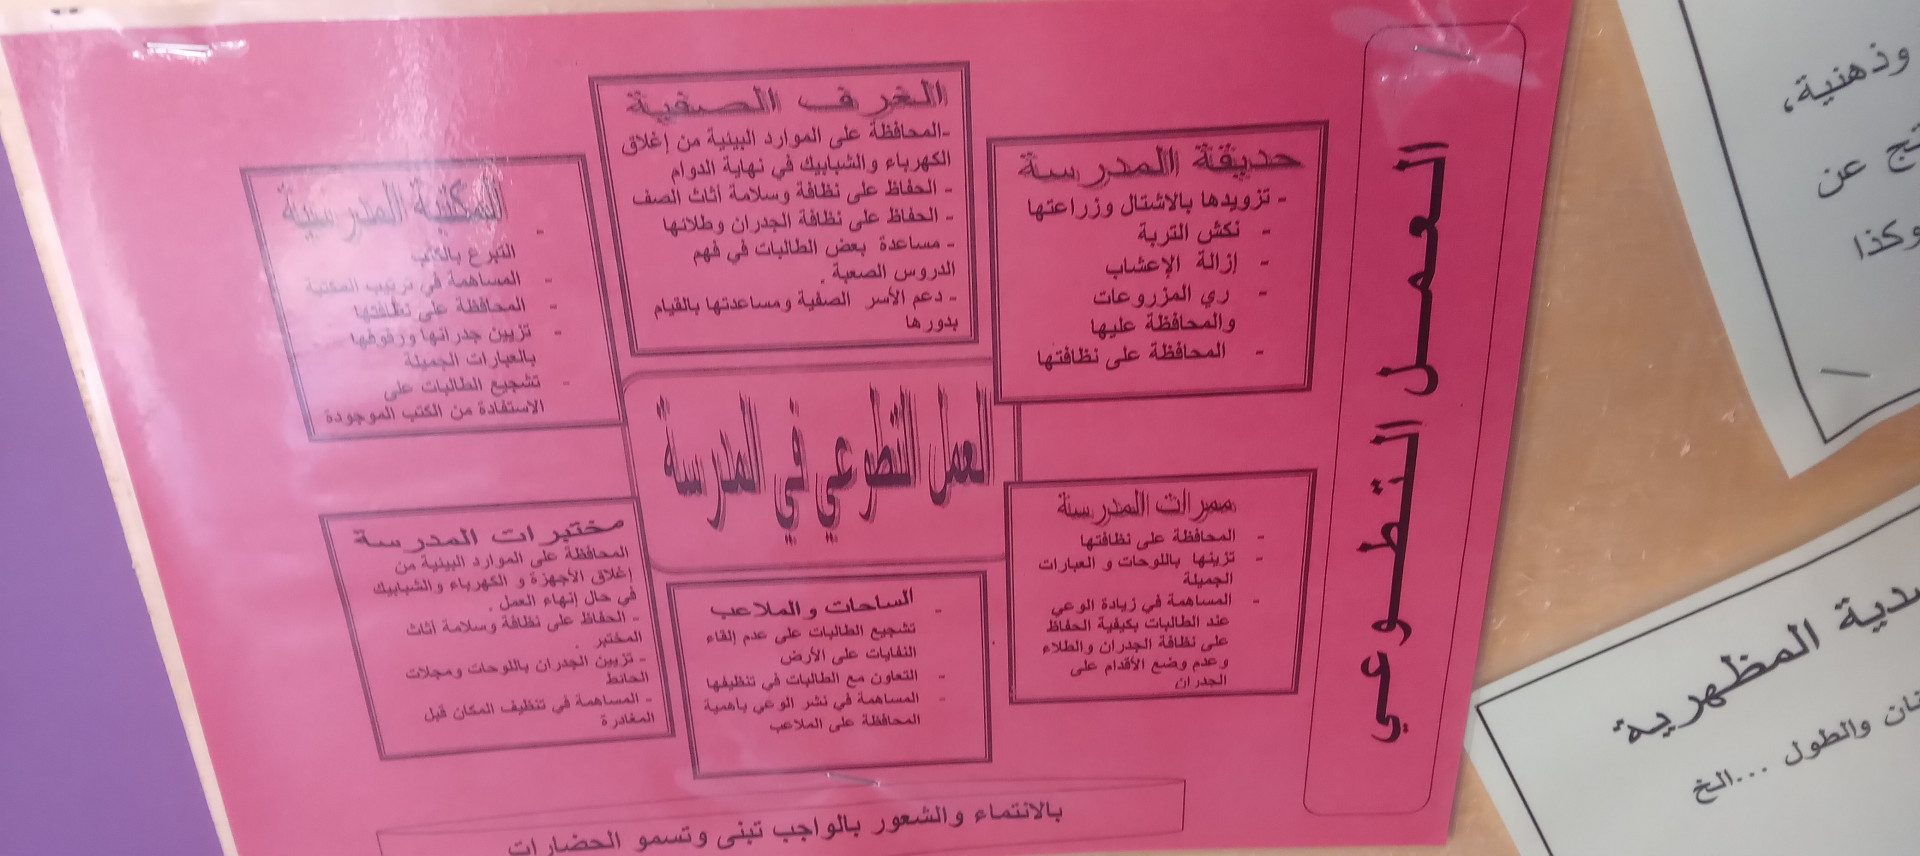 العمل التطوعي
الغرف الصفية
-المحافظة على الموارد البيئية من إغلاق
الكهرباء والشبابيك في نهاية الدوام
- الحفاظ على نظافة وسلامة أثاث الصف
- الحفاظ على نظافة الجدران وطلائها
- مساعدة بعض الطالبات في فهم
الدروس الصعبة .
- دعم الأسر الصفية ومساعدتها بالقيام
بدورها
حديقة المدرسة
- تزويدها بالاشتال وزراعتها
- نكش التربة
- إزالة الإعشاب
- ري المزروعات
والمحافظة عليها
- المحافظة على نظافتها
المكتبة المدرسية
-
التبرع بالكتب
- المساهمة في ترتيب المكتبة
- المحافظة على نظافتها
- تزيين جدرانها ورفوفها
بالعبارات الجميلة
- تشجيع الطالبات على
الاستفادة من الكتب الموجودة
العمل التطوعي في المدرسة
ممرات المدرسة
- المحافظة على نظافتها
- تزينها باللوحات و العبارات
الجميلة
- المساهمة في زيادة الوعي
عند الطالبات بكيفية الحفاظ
على نظافة الجدران والطلاء
وعدم وضع الأقدام على
الجدران
مختبرات المدرسة
المحافظة على الموارد البيئية من
إغلاق الأجهزة و الكهرباء والشبابيك
في حال إنهاء العمل .
- الحفاظ على نظافة وسلامة أثاث
المختبر .
- تزيين الجدران باللوحات ومجلات
الحائط
- المساهمة في تنظيف المكان قبل
المغادرة
الساحات و الملاعب
- تشجيع الطالبات على عدم إلقاء
النفايات على الأرض
- التعاون مع الطالبات في تنظيفها
- المساهمة في نشر الوعي بأهمية
المحافظة على الملاعب
بالانتماء والشعور بالواجب تبنى وتسمو الحضارات
وذهنية،
عن
وكذا
المظهرية
والطول ...الخ